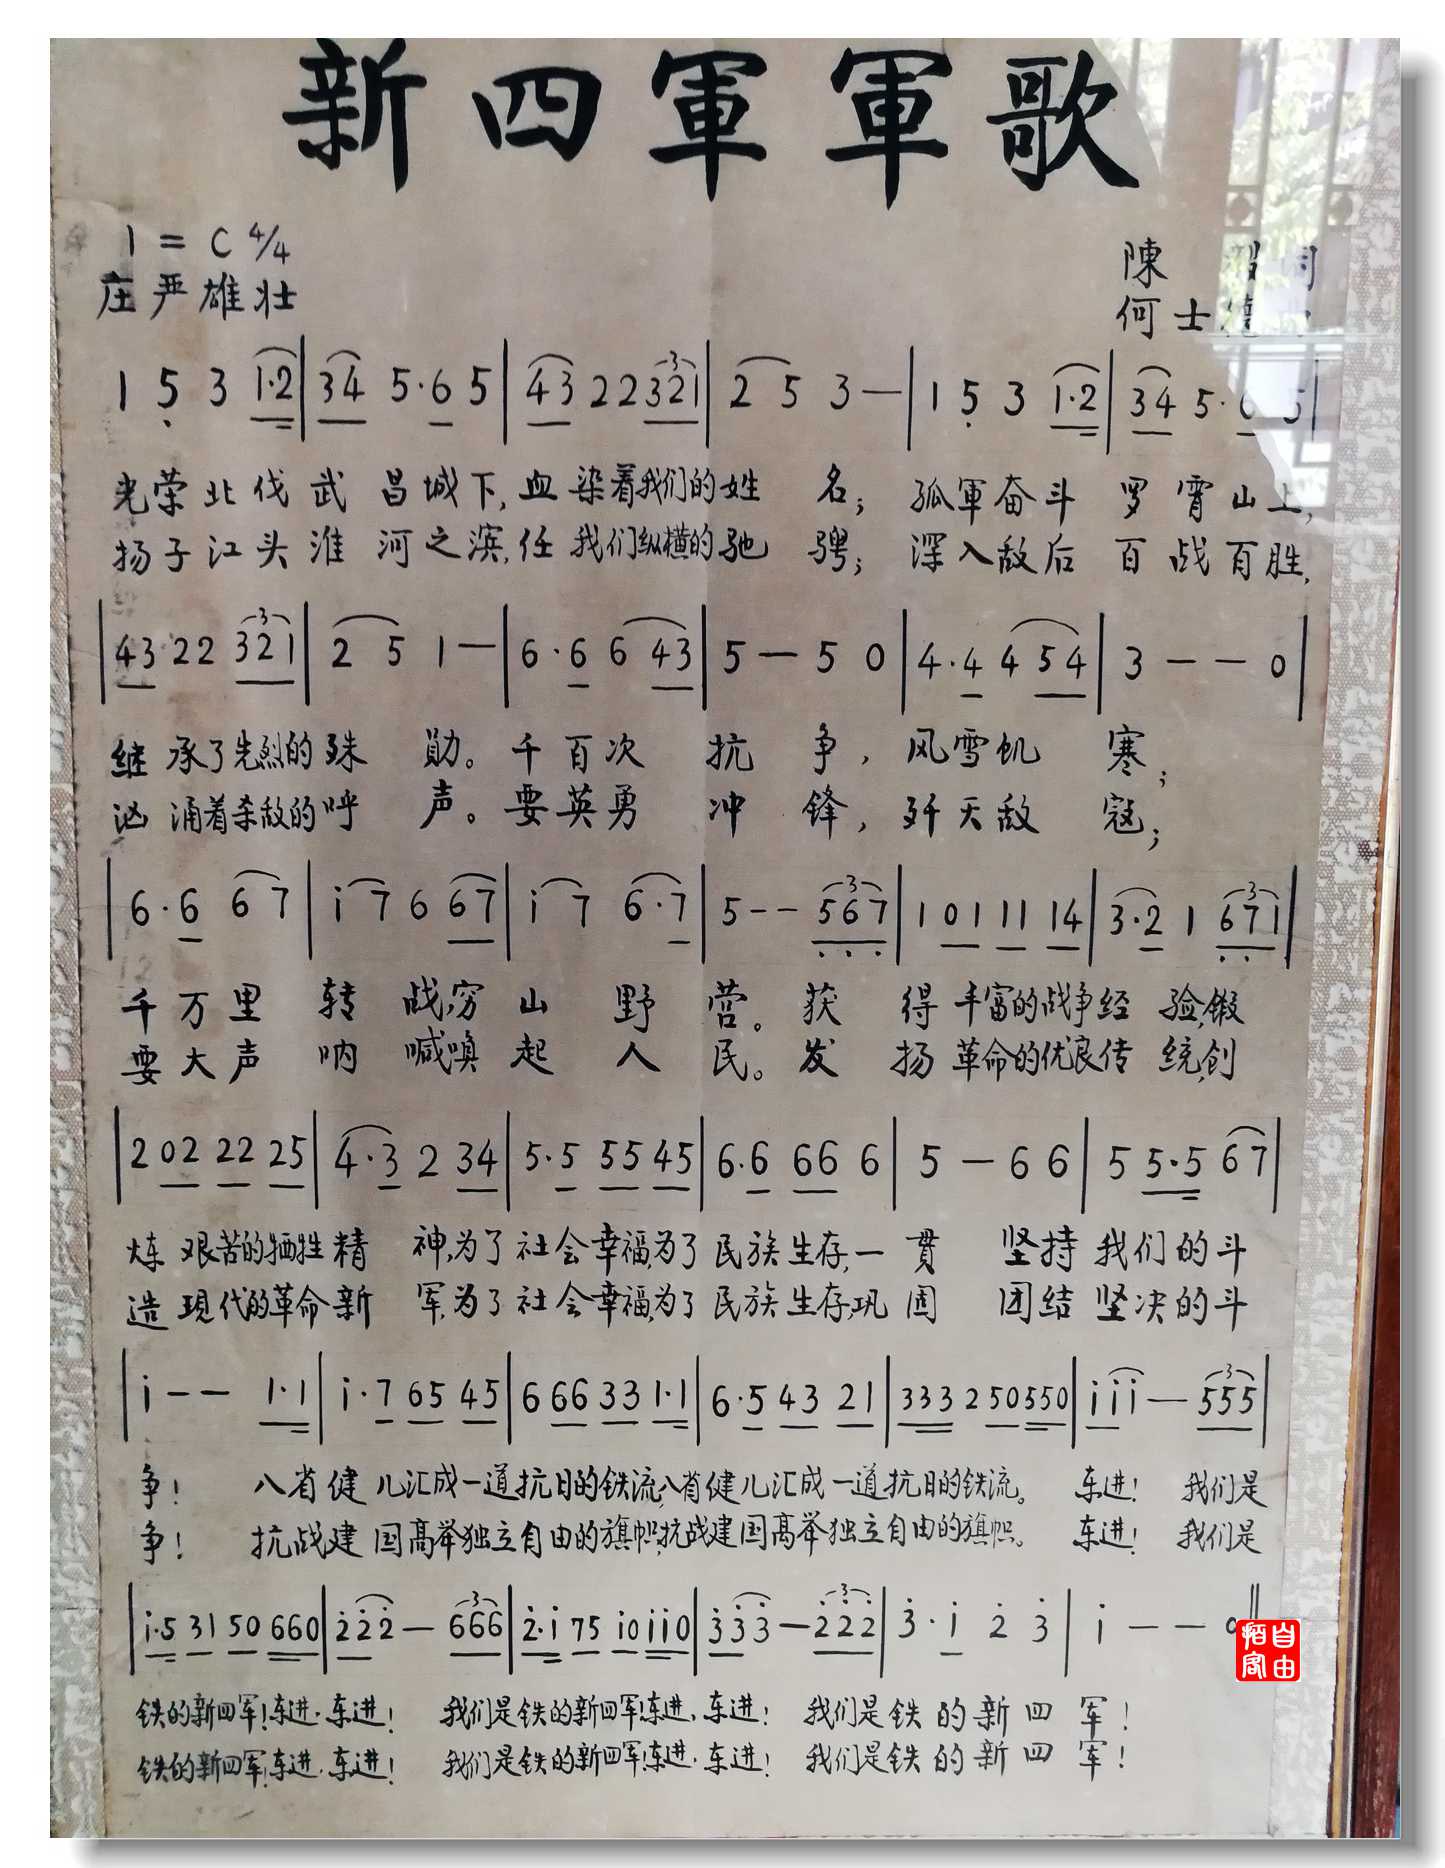 新四軍軍歌
1 = C 4/4
庄严雄壮
陳
何士德
1 5̣ 3 1·2 | 34 5·6 5 | 43 22 321 | 2 5 3 — | 1 5̣ 3 1·2 | 34 5·6 5 |
光荣北伐武昌城下,血染着我们的姓名;孤軍奋斗罗霄山上,
扬子江头淮河之滨,任我们纵横的驰骋;深入敌后百战百胜,
| 43 22 321 | 2 5 1 — | 6·6 6 43 | 5 — 5 0 | 4·4 4 54 | 3 — — 0 |
继承了先烈的殊勋。千百次抗争,风雪饥寒;
汹涌着杀敌的呼声。要英勇冲锋,歼灭敌寇;
| 6·6 6 7 | i 7 6 67 | i 7 6·7 | 5 — — 5̣6̣7̣ | 1 01 11 14 | 3·2 1 6̣7̣1 |
千万里转战,穷山野营。获得丰富的战争经验,锻
要大声呐喊,唤起人民。发扬革命的优良传统,创
| 2 02 22 25 | 4·3 2 34 | 5·5 55 45 | 6·6 66 6 | 5 — 6 6 | 5 5·5 6 7 |
炼艰苦的牺牲精神,为了社会幸福,为了民族生存,一贯坚持我们的斗
造現代的革命新军,为了社会幸福,为了民族生存,巩固团结坚决的斗
| i — — 1·1 | i·7 65 45 | 6 66 33 1·1 | 6·5 43 21 | 333 2 50 550 | i i i — 555 |
争!八省健儿汇成一道抗日的铁流,八省健儿汇成一道抗日的铁流。东进!我们是
争!抗战建国高举独立自由的旗帜,抗战建国高举独立自由的旗帜。东进!我们是
| i·5 31 50 660 | 2̇2̇2̇ — 666 | 2̇·i 75 i0 ii0 | 3̇3̇3̇ — 2̇2̇2̇ | 3̇·i 2̇ 3̇ | i — — 0 ‖
铁的新四军!东进.东进!我们是铁的新四军!东进,东进!我们是铁的新四军!
铁的新四军!东进.东进!我们是铁的新四军!东进.东进!我们是铁的新四军!
自由
陌客